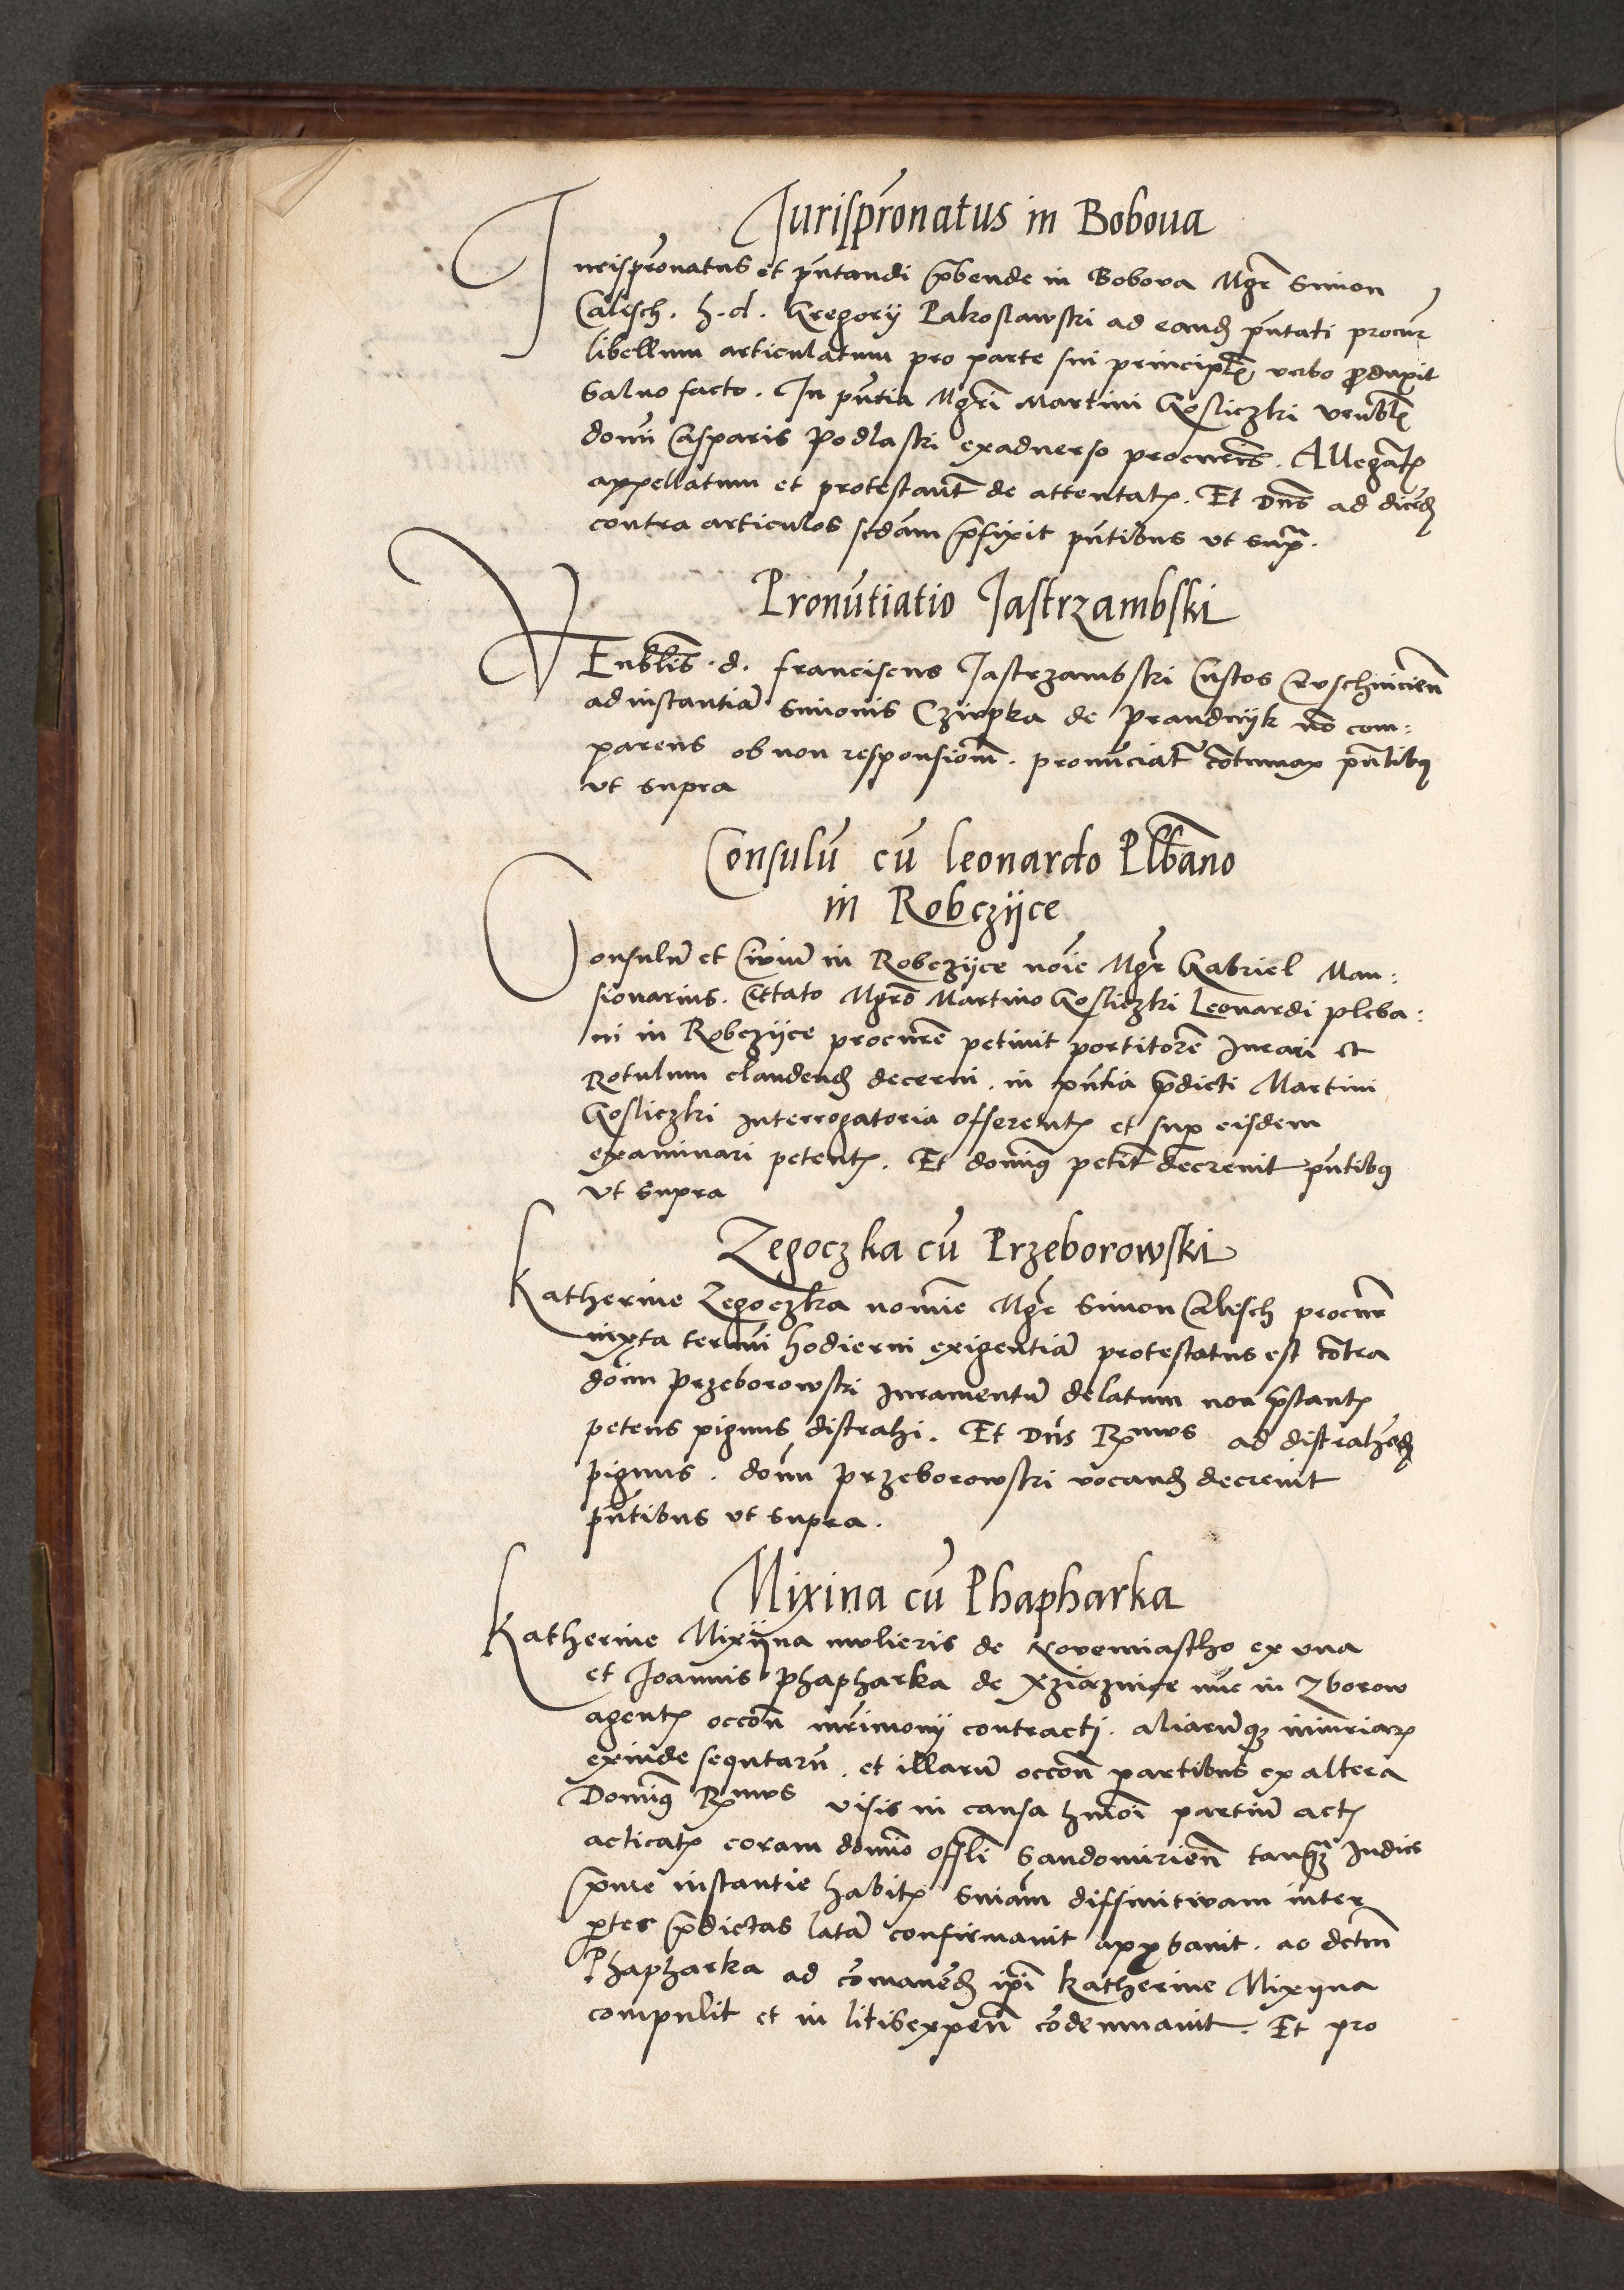 Jurispronatus in Boboua
Jurispronatus et pñtandi pbende in Bobova Mgr Simon
Calisch. h. d. Gregorij Pakoslawski ad eand pñtati procur
libellum articulatum pro parte sui principlis verbo produxit
Salvo facto. In pñtia Mgri Martini Gosliczki venblis
domi Casparis Podlaski exadverso procuris. Allegatis
appellatum et protestant de attentatis. Et Dns ad dicend
contra articulos scdam pfixit pntibus ut supra.
Pronūtiatio Jastrzambski
VEnblis. d. franciscus Jastrzambski Custos Cruschvicien
ad instantiā Simonis Cziupka de Prandnijk nō com:
parens ob non responsionm. pronūciat cōtumax pntibus
ut supra
Consulū cū leonardo Plbano
in Robczijce
Consulū et Civiū in Robczijce noīe Mgr Gabriel Man:
sionarius. Cttato Mgro Martino Gosliczki Leonardi pleba:
ni in Robczijce procurē petiuit portitorē Jurari et
Rotulum claudend decerni. in pntia pdicti Martini
Gosliczki Interrogatoria offerentis et sup eisdem
examinari petentis. Et dominus petit decrevit pntibus
ut supra
Zegoczka cū Przeborowski
Katherine Zegoczka nomīe Mgr Simon Calisch procur
iuxta termini hodierni exigentiā protestatus est cōtra
dōm Przeborowski Juramentū delatum non pstantis
petens pignus distrahi. Et Dns Rmus ad distrahēd
pignus. dōm Przeborowski vocand decrevit
pñtibus ut supra.
Mixina cū Phapharka
Katherine Mixijna mulieris de Novemiastho ex una
et Joannis Phapharka de Xziaznice nūc in Zborow
agentis occōn mrimonij contracti. aliarūque iniuriarum
exinde sequtarū. et illarū occōn partibus ex altera
Dominus Rmus visis in causa hmōi partiū actis
acticatis coram domīo offli Sandomirien tanquam Iudicis
prime instantie habitis Sniām diffinitivam inter
ptes pdictas latā confirmavit approbavit. ac dctm
Phapharka ad cōmanēd ipi Katherine Mixyna
compulit et in litis expen cōdemnavit. Et pro